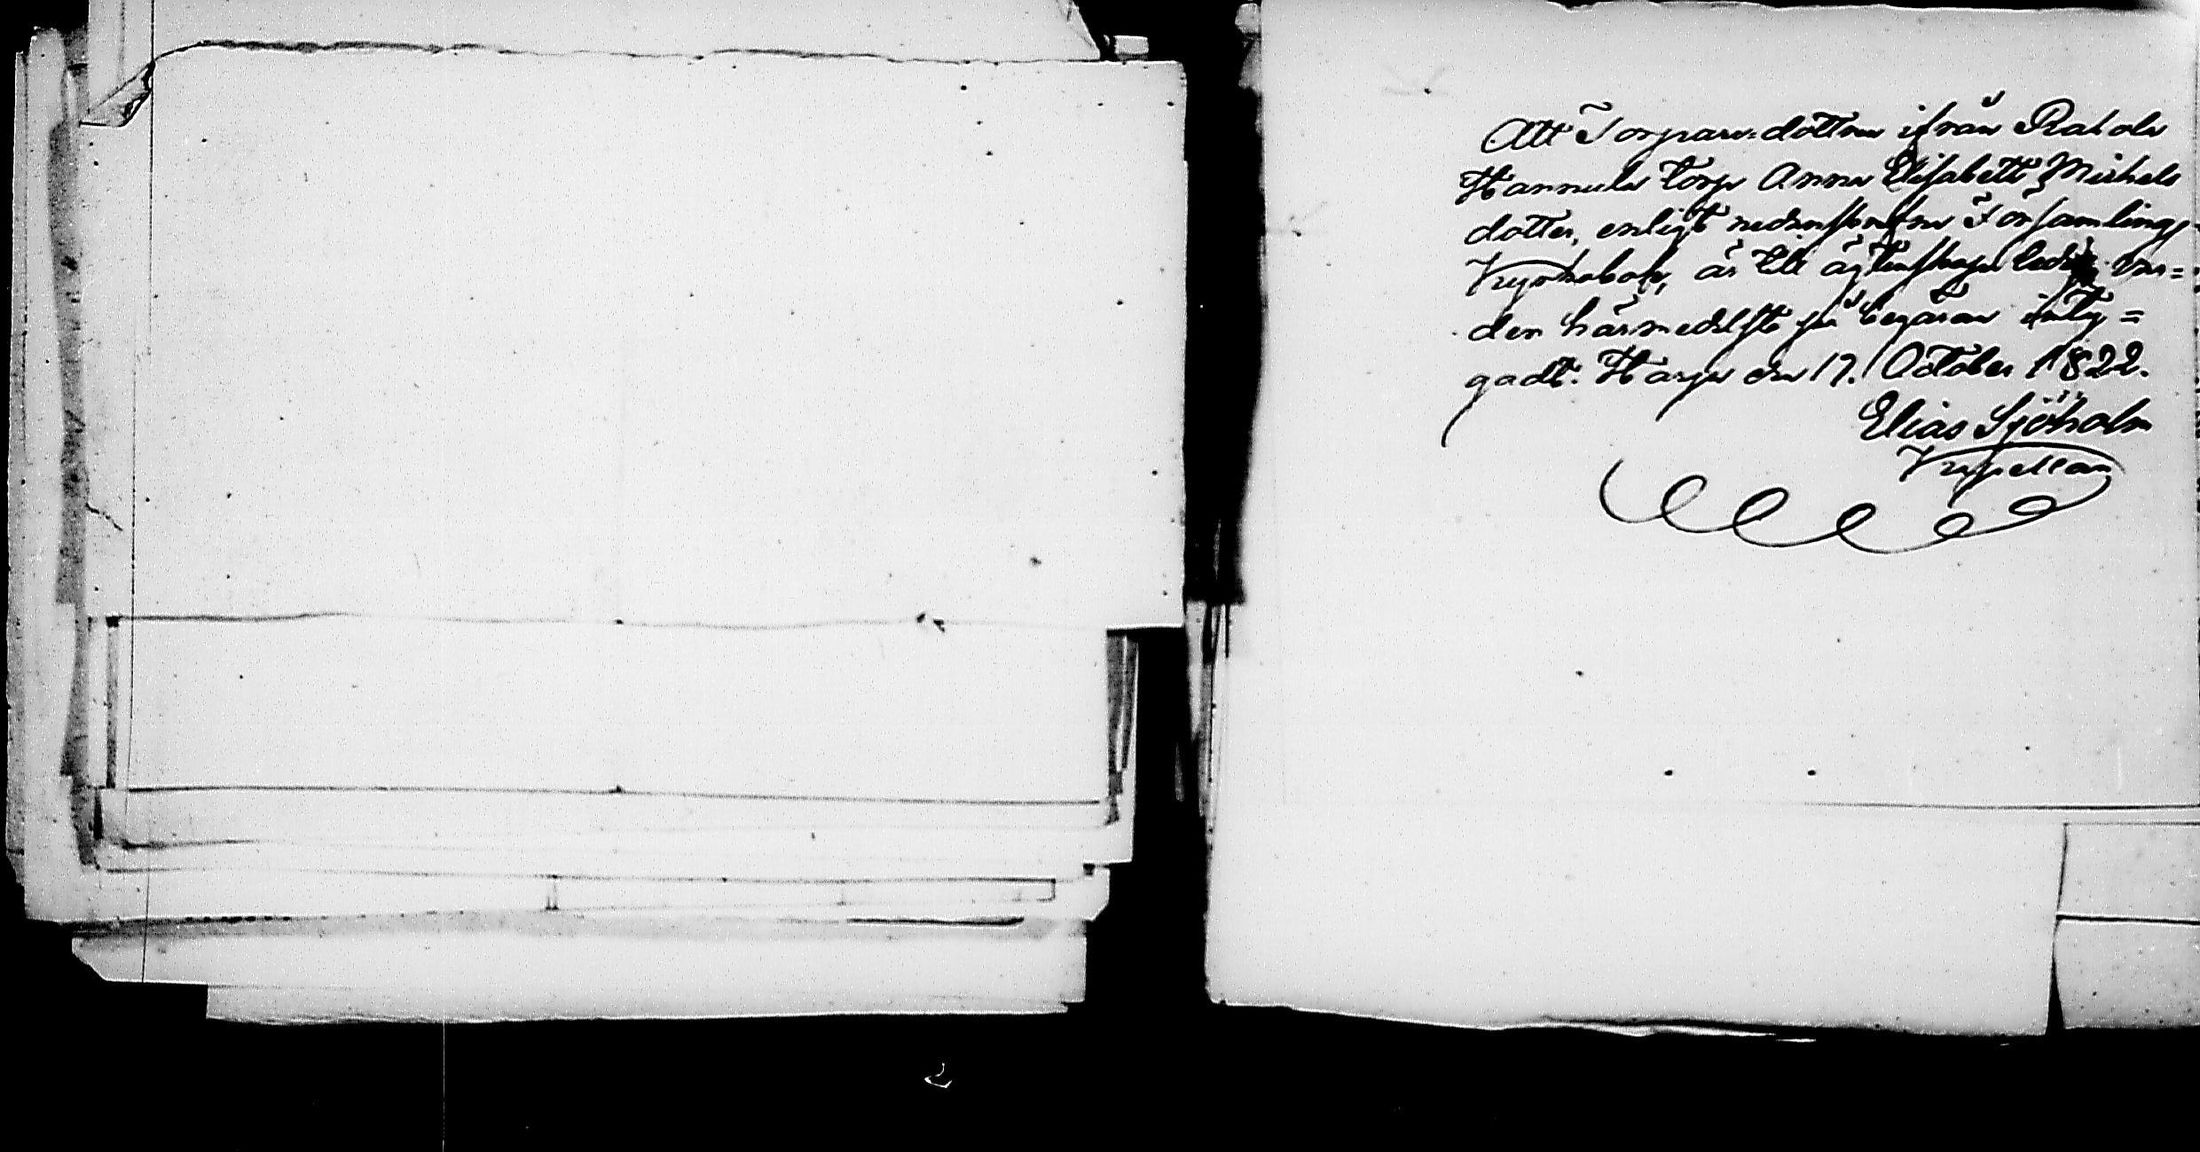 Att Torpare-dottren ifrån Rahola
Hannula torp Anna Elisabeth Michels
dotter, enligt nedanskrefne Församlings-
Kyrkobok, är till äktenskap ledig var=
der härmedelst på begäran inty=
gadt. Harju den 17. October 1822.
Elias Sjöholm
Kapellan